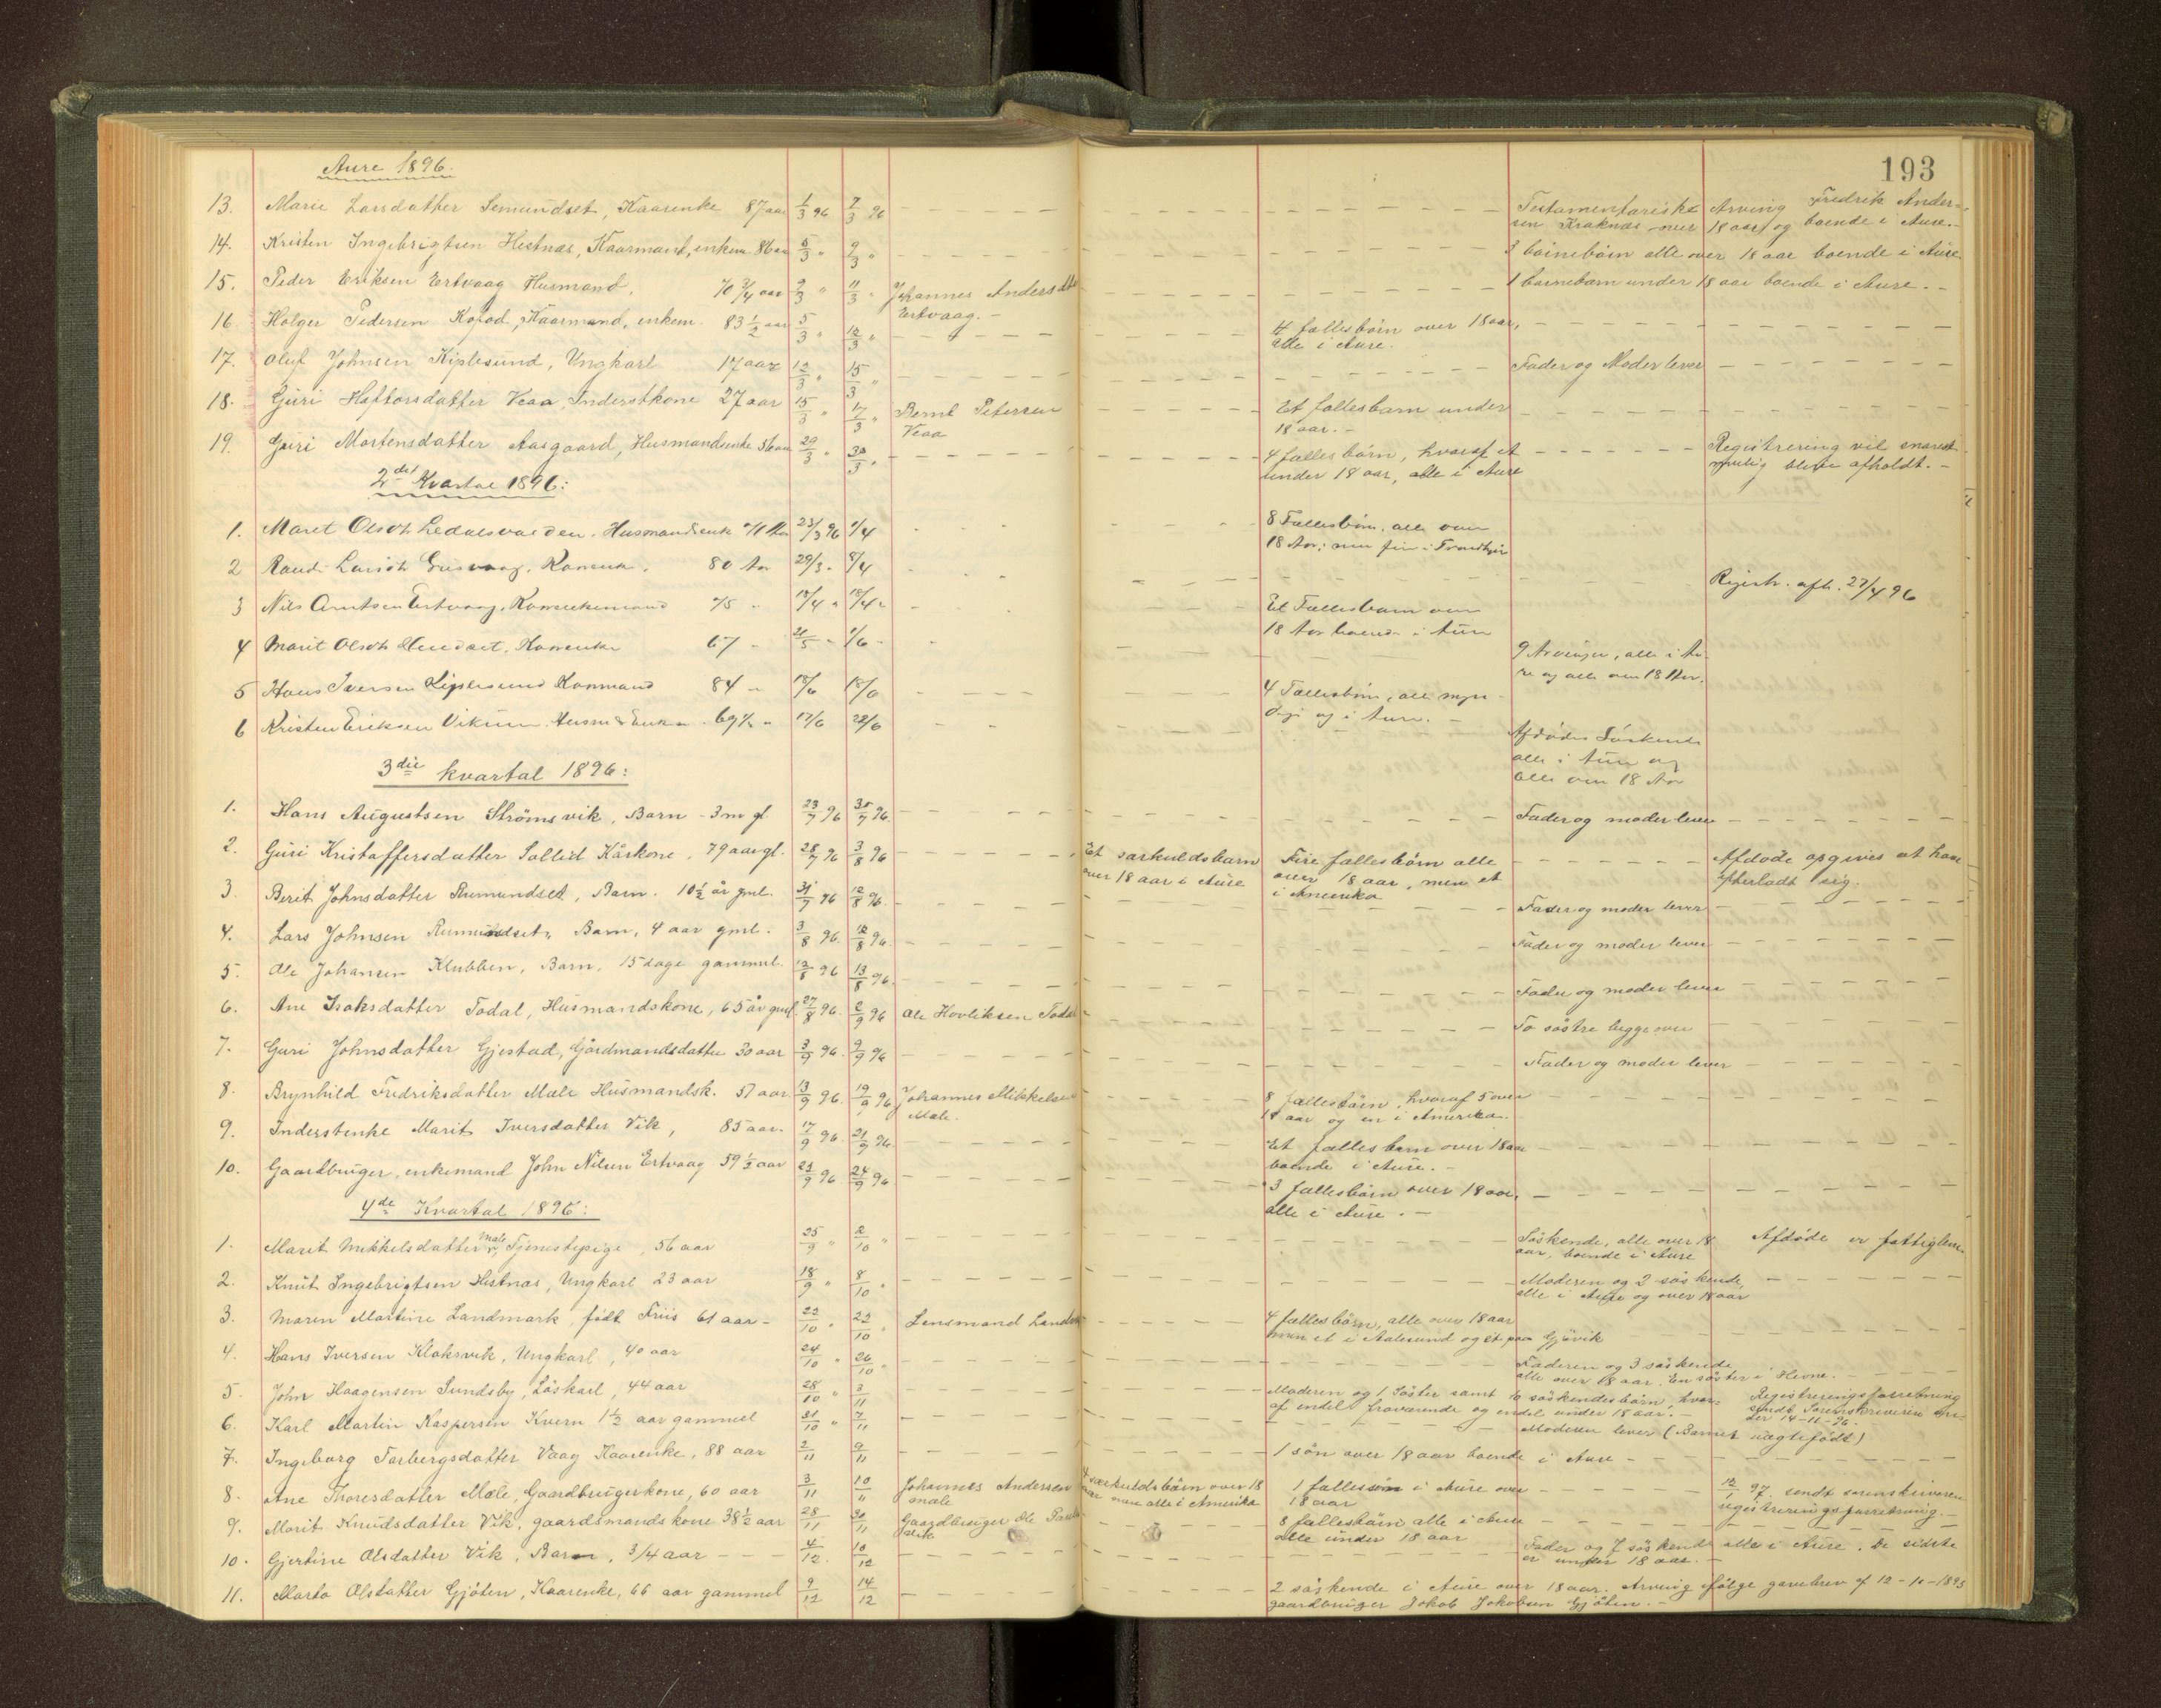 Aure 1896.
193
13. Marie Larsdatter Semundset, Kaarenke 87 aar 1/3 96 7/3 96 Testamentariske Arving Fredrik Ander-
sen Kraknæs over 18 aar og boende i Aure.-
14. Kristen Ingebrigtsen Hestnæs, Kaarmand, enkem. 86 aar 5/3 " 9/3 " 3 børnebørn alle over 18 aar boende i Aure
15. Peder Eriksen Ertvaag Husmand. 70 3/4 aar 9/3 " 11/3 " Johannes Anders 1 barnebarn under 18 aar boende i Aure. -
Ertvaag. -
16. Holger Pedersen Kaarmand, enkem. 83 1/2 aar 5/3 " 12/3 " 4 fællesbörn over 18 aar,
alle i Aure.
17. Oluf Johnsen Kiplesund, Ungkarl 17 aar 12/3 " 15/3 " Fader og Moder lever
18. Guri Haftorsdatter Veaa, Inderstkone 27 aar 15/3 " 17/3 " Bernt Petersen Et fællesbarn under
Veaa 18 aar. -
19. Guri Mortensdatter Aasgaard, Husmandsenke 56 aar 29/3 " 30/3 " 4 fællesbörn, hvoraf et Registrering vil snarest
under 18 aar, alle i Aure mulig blive afholdt. -
2det Kvartal 1896:
1. Maret Olsdtr Ledalsvalden. Husmandsenk 23/3 96 1/4 8 Fællesbörn, alle over
18 Aar;
2 Raudi Larsdtr Grisvaag, Kaarenk. 80 Aar 29/3 - 8/4 Registr. afh. 27/4 96
3 Nils Arntsen Ertvaag, 75 " 10/4 " 18/4 " Et Fællesbarn over
18 Aar boende i Aure
4 Marit Olsdtr Kaarenke 67 - 21/5 - 1/6 - 9 Arvinger, alle i Au-
re og alle over 18 Aar.
5 Hans Iversen Kiplesund Kaarmand 84 " 10/6 18/6 4 Fællesbörn, alle myn-
dige og i Aure. -
6 Kristen Eriksen 69 1/2 " 17/6 28/6 Afdødes Söskende
alle i Aure og
alle over 18 Aar
3die kvartal 1896:
1. Hans Augustsen Strömsvik, Barn - 3 m gl. 23/7 96 30/7 96. Fader og moder lever
2. Guri Kristoffersdatter Sollid Kårkone, 79 aar gl. 28/7 96 3/8 96 Et særkuldsbarn Fire fællesbörn alle Afdøde opgives at have
over 18 aar i Aure over 18 aar, men et efterladt sig.
i Amerika
3. Berit Johnsdatter Rumundset, Barn. 10 1/2 år gml. 31/7 96 12/8 96. Fader og moder lever
4. Lars Johnsen Rumundset, Barn, 4 aar gml. 3/8 96. 12/8 96. Fader og moder lever
5. Ole Johansen Klubben, Barn, 15 dage gammel. 12/8 96 13/8 96. Fader og moder lever
6. Ane Isaksdatter Todal, Husmandskone, 65 år gml. 27/8 96. 2/9 96 Ole Hovliksen Todal To söstre begge over
7. Guri Johnsdatter Gjestad, Gårdmandsdatter 30 aar 3/9 96. 9/9 96 Fader og moder lever
8. Brynhild Fredriksdatter Mæle Husmandsk. 57 aar 13/9 96. 19/9 96 Johannes Mikkelsen 8 fællesbörn, hvoraf 5 over
Mæle. 18 aar og en i Amerika.
9. Inderstenke Marit Iversdatter Vik, 85 aar. 17/9 96. 21/9 96 Et fællesbarn over 18 aar
boende i Aure. -
10. Gaardbruger, enkemand John Nilsen Ertvaag 59 1/2 aar 23/9 96. 24/9 96 3 fællesbörn over 18 aar,
alle i Aure. -
4de Kvartal 1896:
1. Marit Mikkelsdatter Mæle, Tjenestepige, 56 aar 25/9 " 2/10 " Söskende, alle over 18 Afdøde er fattiglem.
aar, boende i Aure
2. Knut Ingebrigtsen Hestnæs, Ungkarl 23 aar 18/9 " 8/10 " Moderen og 2 söskende,
alle i Aure og over 18 aar
3. Maren Martine Landmark, født Friis 61 aar - 22/10 " 23/10 " Lensmand 4 fællesbörn, alle over 18 aar
men et i Aalesund og et paa Gjövik
4. Hans Iversen Klaksvik, Ungkarl, 40 aar 24/10 " 26/10 " Faderen og 3 söskende,
alle over 18 aar. En söster i Hevne. -
5. John Haagensen Sundsby, Löskarl, 44 aar 28/10 " 3/11 Moderen og 1 Söster samt 10 söskendesbörn, hvor- Registreringsforretning
af endel fraværende og endel under 18 aar. - sendt Sorenskriveren un-
der 14-11-96.
6. Karl Martin Kaspersen Kvern 1 1/2 aar gammel 31/10 " 7/11 Moderen lever (Barnet uægtefödt)
7. Ingeborg Torbergsdatter Vaag Kaarenke, 88 aar 2/11 9/11 1 sön over 18 aar boende i Aure -
8. Ane Thoresdatter Mæle, Gaardbrugerkone, 60 aar 3/11 10/11 Johannes Andersen særkuldsbörn over 18 1 fællessön i Aure over 12/1 97 sendt sorenskriveren
Mæle aar alle i Amerika 18 aar registreringsforretning. -
9. Marit Knudsdatter Vik, gaardmandskone 38 1/2 aar 28/11 30/11 Gaardbruger Ole 8 fællesbörn alle i Aure
Vik alle under 18 aar
10. Gjertine Olsdatter Vik, Barn, 3/4 aar 4/12. 10/12 Fader og 7 söskende alle i Aure. De sidste
er under 18 aar. -
11. Marta Olsdatter Gjöten, Kaarenke, 66 aar gammel 9/12 14/12 2 söskende i Aure over 18 aar. Arving ifölge gavebrev af 12-10-1893
gaardbruger Jakob Jakobsen Gjöten. -